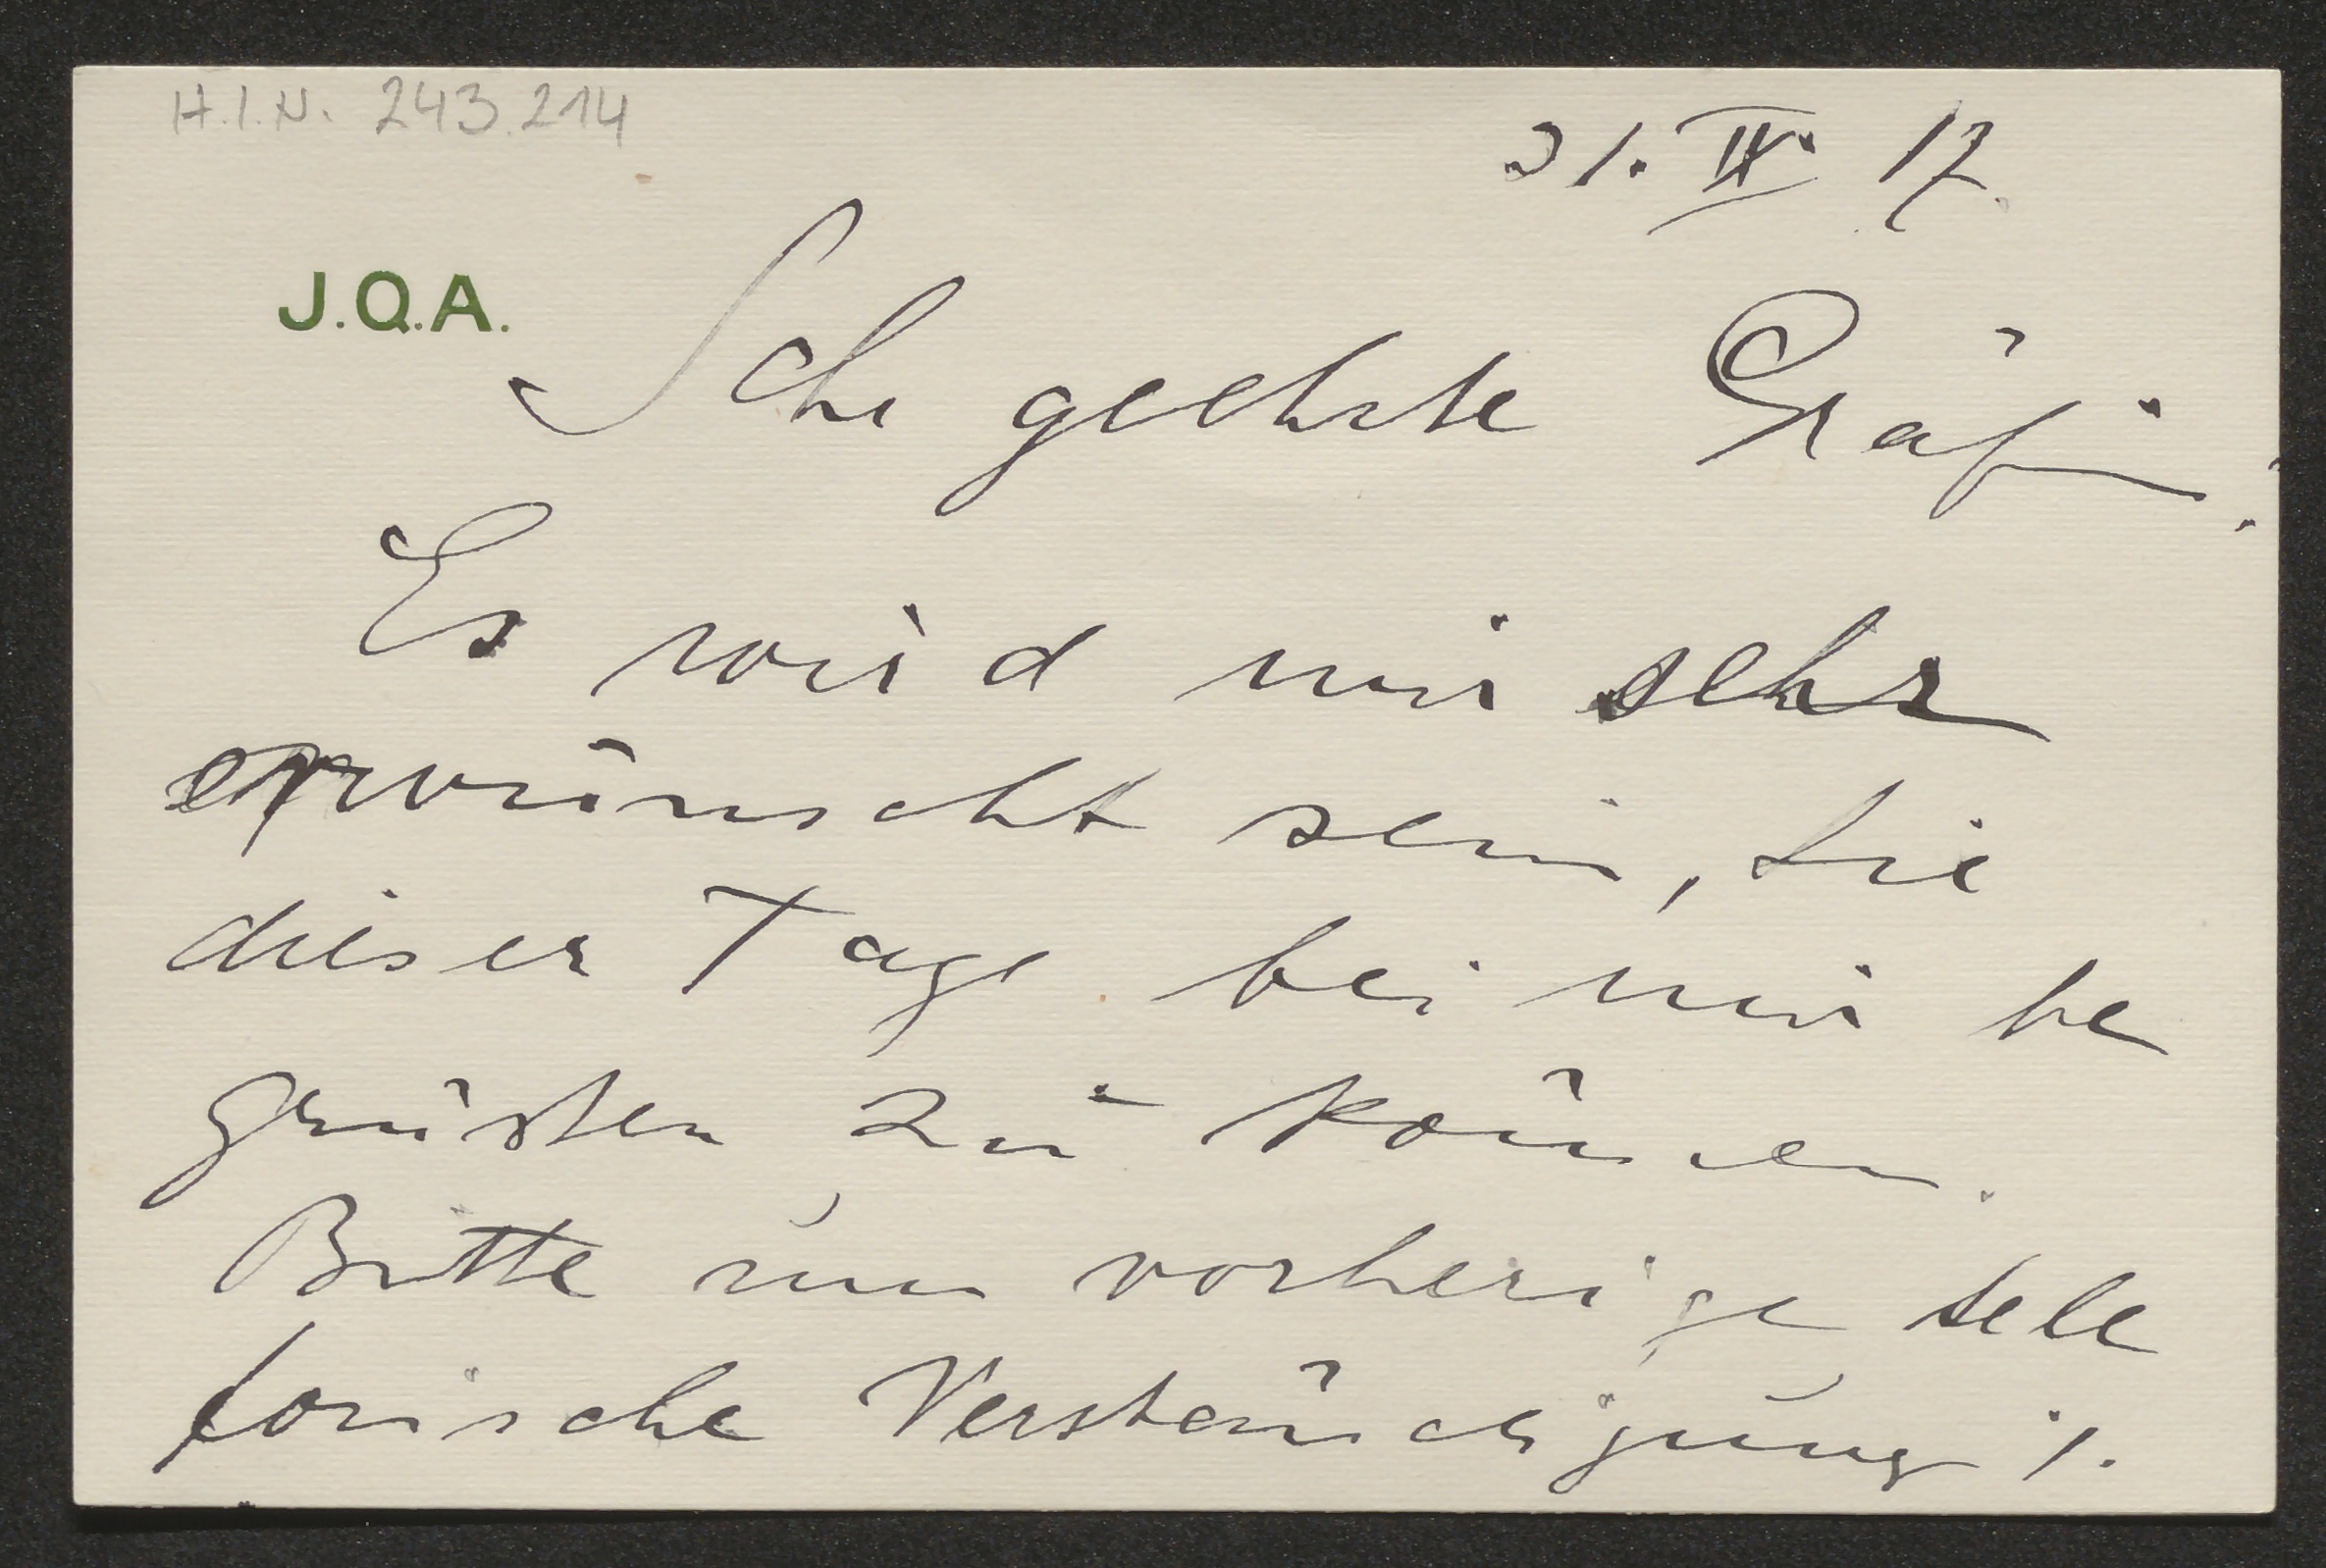 H.I.N. 243.214
31. IX. 17.
J.Q.A.
Sehr geehrte Gräfin:
Es wird mir sehr
erwünscht sein, Sie
dieser Tage bei mir be
grüssen zu können.
Bitte um vorherige tele
fonische Verständigung ./.